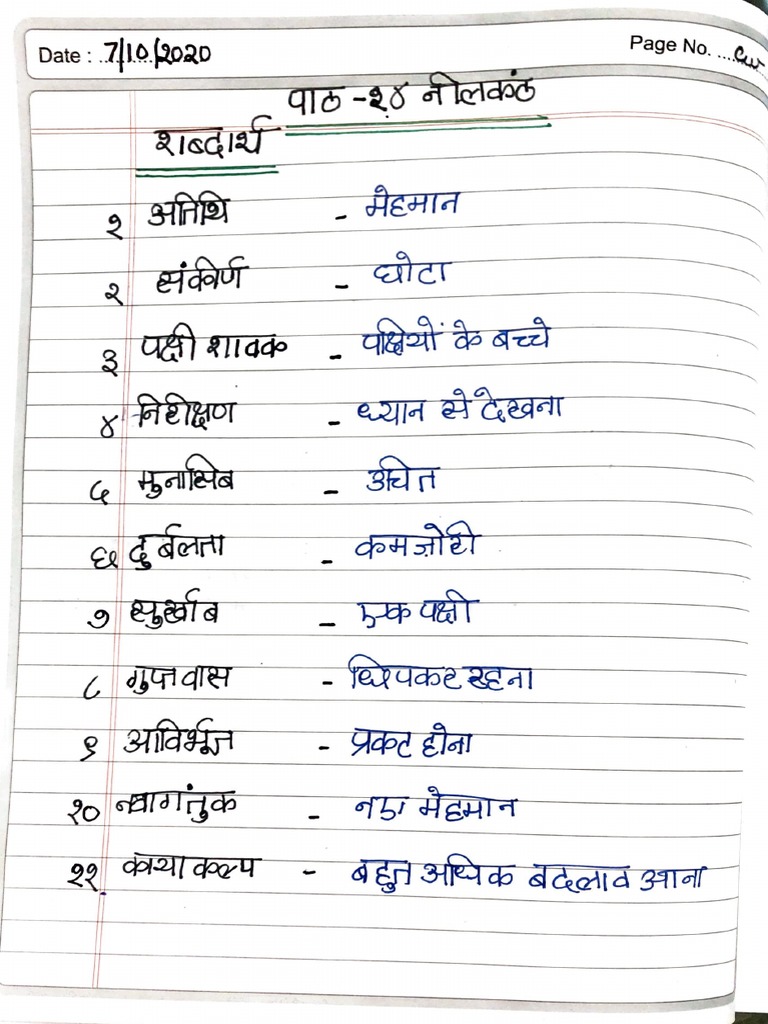 Date : 7/10/2020
Page No. .... Cw
पाठ -१४ नीलकंठ
शब्दार्थ
१ अतिथि - मेहमान
२ संकीर्ण - छोटा
३ पक्षी शावक - पक्षियों के बच्चे
४ निरीक्षण - ध्यान से देखना
५ मुनासिब - उचित
६ दुर्बलता - कमज़ोरी
७ सुर्खाब - एक पक्षी
८ गुप्तवास - छिपकर रहना
९ आविर्भूत - प्रकट होना
१० नवागंतुक - नए मेहमान
११ काया कल्प - बहुत अधिक बदलाव आना